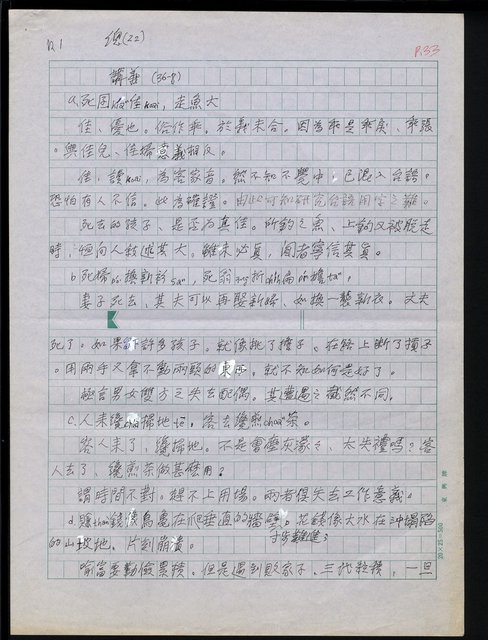 P.1 總(22) P.33
講善 (36-8)
a.死囝 佳 kuai,走魚大
佳、優也。俗作乖。於義未合。因為乖是乖戾、乖張
。與佳兒、佳婦意義相反。
佳、讀kuai,為客家音。然不知不覺中,已混入台語。
恐怕有人不信。此為確證。由此可知研究台語用字之難。
死去的孩子、是否為真佳。所釣之魚、上鈎又被脫走
時,逕向人敘述其大。雖未必真,聞者寧信其真。
b.死婦 換新衫 saⁿ,死翁 折 擔。
妻子死去、其夫可以再娶新婦、如換一襲新衣。丈夫
死了。如果許多孩子。就像挑了擔子、在路上斷了擔子
。用兩手又拿不動兩頭的東西。就不知如何是好了。
極言男女雙方之失去配偶。其遭遇之截然不同。
c.人來纔 掃地,客去纔煎 茶。
客人來了、纔掃地。不是會塵灰濛々、太失禮嗎?客
人去了、纔煎茶做甚麼用?
謂時間不對。趕不上用場。兩者俱失去工作意義。
d. than錢像烏龜在爬垂直的牆壁。花錢像大水在沖塌陷
的山坡地。片刻崩潰。 寸步難進;
喻富要勤儉累積。但是遇到敗家子、三代粒積,一旦
20×25=500